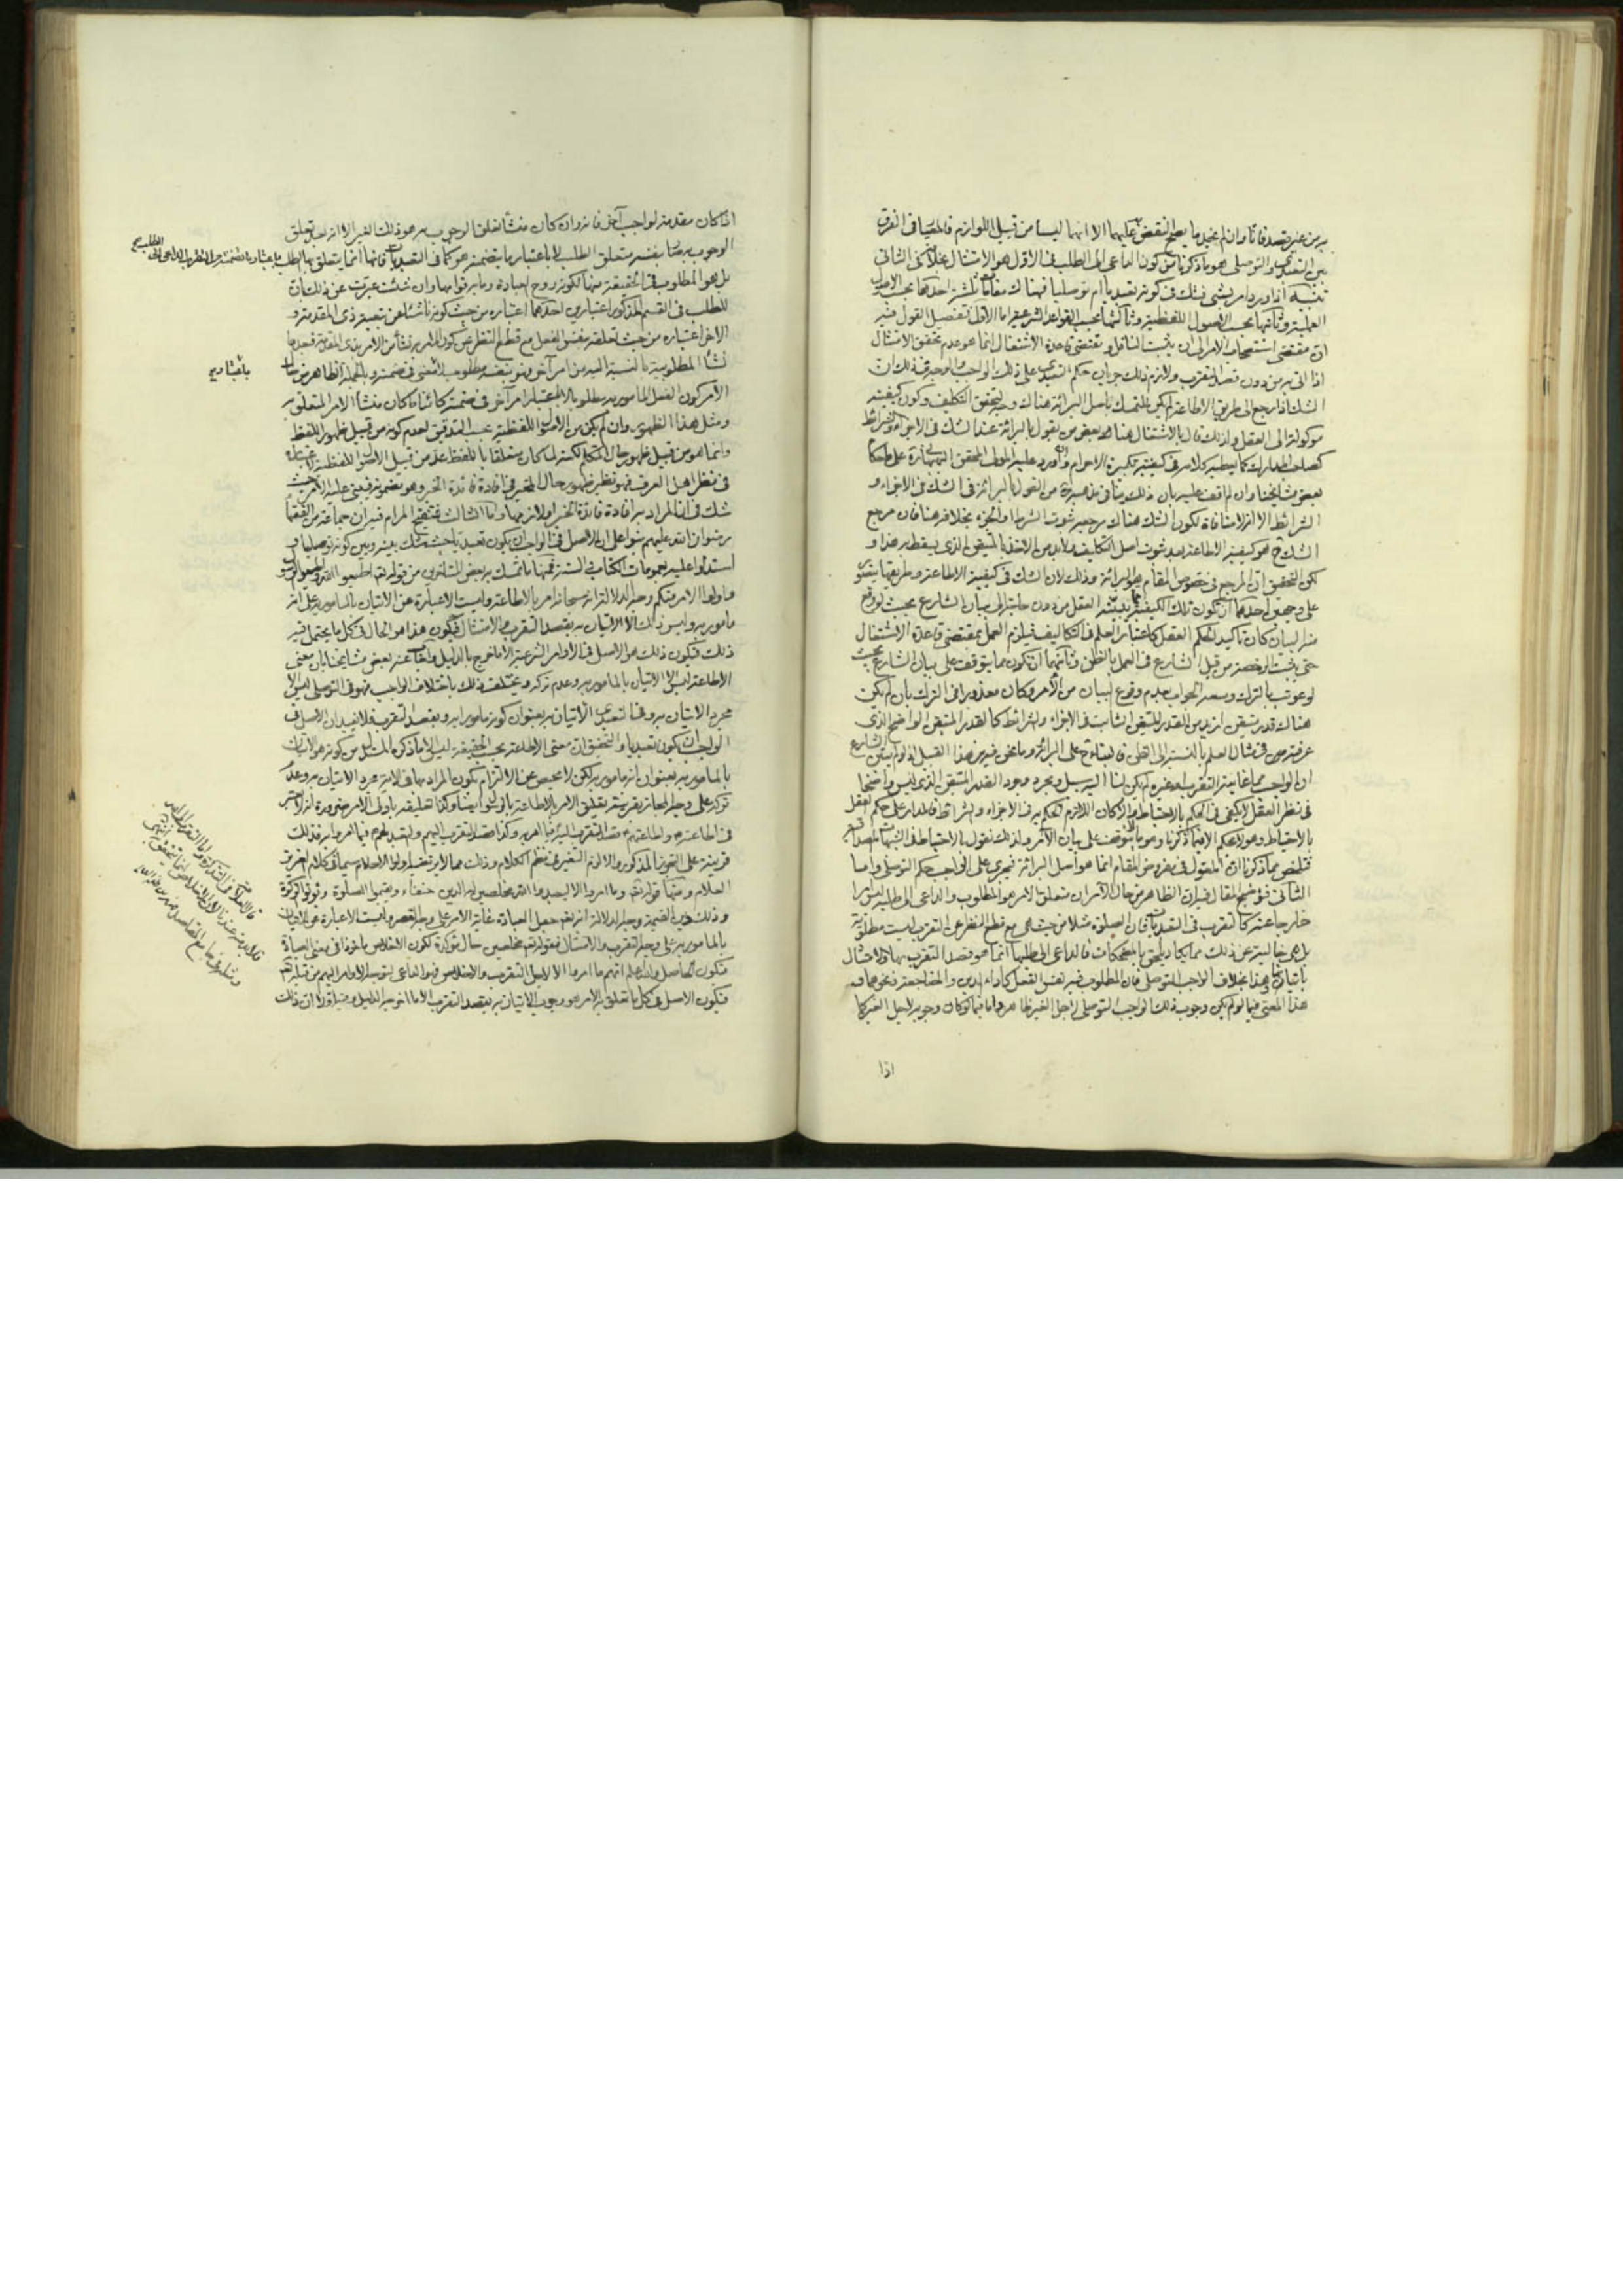 به من غير قصد فانا وان لم نجد ما يصلح للنقض عليهما الا انهما ليسا من قبيل اللوازم فالمعيار في الفرق
بين التعبدي والتوصلي هو ما ذكرنا من كون الداعي الى الطلب في الاول هو الامتثال بخلافه في الثاني
تنبيه اذا ورد امر بشيء فشك في كونه تعبديا ام توصليا فهناك مقامات ثلثة احدها بحسب الاصول
العملية وثانيها بحسب الاصول اللفظية وثالثها بحسب القواعد الشرعية اما الاول فتفصيل القول فيه
ان مقتضى استصحاب الامر الى ان يثبت الناقل ومقتضى قاعدة الاشتغال انما هو عدم تحقق الامتثال
اذا اتى به من دون قصد التقرب ولازم ذلك جريان حكم التعبدي على ذلك الواجب والوجه في ذلك ان
الشك اذا رجع الى طريق الاطاعة لم يكن للتمسك باصل البرائة هناك وجه لتحقق التكليف وكون كيفيته
موكولة الى العقل ولذلك قال بالاشتغال هنا بعض من يقول بالبرائة عند الشك في الاجزاء والشرائط
كصاحب المدارك كما يعطيه كلامه في كيفية تكبيرة الاحرام واورد عليه المولى المحقق البهبهاني على ما حكاه
بعض مشايخنا وان لم اقف عليه بان ذلك ينافي مذهبه من القول بالبرائة في الشك في الاجزاء و
الشرائط الا انه لا منافاة لكون الشك هناك مرجعه ثبوت الشرط او الجزء بخلافه هنا فان مرجع
الشك ح هو كيفية الاطاعة بعد ثبوت اصل التكليف ولا بد من الاخذ بالمتيقن الذي يسقط به هذا و
لكن التحقيق ان المرجع في خصوص المقام هو البرائة وذلك لان الشك في كيفية الاطاعة وطريقها يتصور
على وجهين احدهما ان تكون تلك الكيفية مما يثبته العقل من دون حاجة الى بيان الشارع بحيث لو وقع
منه البيان كان تاكيدا لحكم العقل كاعتبار العلم في التكاليف فيلزم العمل بمقتضى قاعدة الاشتغال
حتى يثبت الرخصة من قبل الشارع في العمل بالظن وثانيهما ان تكون مما يتوقف على بيان الشارع بحيث
لو عوتب بالترك وسعه الجواب بعدم وقوع البيان من الآمر وكان معذورا في الترك بان لم يكن
هناك قدر متيقن ازيد من القدر المتيقن الثابت في الاجزاء والشرائط كالقدر المتيقن الواضح الذي
عرفته في مثال العلم بالنسبة الى الظن فالبناء ح على البرائة وما نحن فيه من هذا القبيل اذ لو لم يبين الشارع
ان الواجب مما غايته التقرب او غيره لم يكن لنا اليه سبيل ومجرد وجود القدر المتيقن الذي ليس واضحا
في نظر العقل لا يكفي في الحكم بالاحتياط والا لكان اللازم الحكم به في الاجزاء والشرائط فالمدار على حكم العقل
بالاحتياط وهو لا يحكم الا فيما ذكرنا دون ما يتوقف على بيان الآمر ولذلك نقول بالاحتياط في الشبهات المصداقية
فتلخص مما ذكرنا ان المعول في مفروض المقام انما هو اصل البرائة فيجري على الواجب حكم التوصلي واما
الثاني فتوضيح المقال فيه ان الظاهر من حال الآمر ان متعلق الامر هو المطلوب والداعي الى الطلب ليس امرا
خارجا عنه كالتقرب في التعبديات فان الصلوة مثلا من حيث هي مع قطع النظر عن التقرب ليست مطلوبة
بل هي خالية عن ذلك فالداعي الى طلبها انما هو قصد التقرب بها والامتثال
باتيانها وهذا بخلاف الواجب التوصلي فان المطلوب فيه نفس الفعل كاداء الدين والمضاجعة ونحوهما و
هذا المعنى فيما لو لم يكن وجوب ذلك الواجب التوصلي لاجل الغير ظاهر واما فيما لو كان وجوبه لاجل الغير كما
اذا
اذا كان مقدمة لواجب آخر فانه وان كان منشأ تعلق الوجوب به هو ذلك الغير الا انه بعد تعلق
الوجوب به صار بنفسه متعلق الطلب لا باعتبار ما يتضمنه هو كما في التعبديات فانها انما يتعلق بها الطلب
بل هو المطلوب في الحقيقة منها لكونه روح العبادة وما به قوامها وان شئت عبرت عن ذلك بان
للطلب في القسم المذكور اعتبارين احدهما اعتباره من حيث كونه ناشئا من تبعية ذي المقدمة و
الاخر اعتباره من حيث تعلقه بنفس الفعل مع قطع النظر عن كون الامر به نشأ من الامر بذي المقدمة
نشأ المطلوبية بالنسبة اليه من امر آخر فهو بنفسه مطلوب لا لشيء في ضمنه وبالجملة الظاهر من حال
الآمر كون الفعل المامور به مطلوبا لا باعتبار امر آخر في ضمنه كائنا ما كان منشأ الامر المتعلق به
ومثل هذا الظهور وان لم يكن من الاصول اللفظية بحسب التدقيق لعدم كونه من قبيل ظهور اللفظ
وانما هو من قبيل ظهور حال المتكلم لكنه لما كان متعلقا باللفظ عد من قبيل الاصول اللفظية
في نظر اهل العرف فهو نظير ظهور حال المخبر في افادة فائدة الخبر وهو مضمونه فيبنى عليه الامر حيث
شك في ان المراد به افادة فائدة الخبر او لازمها واما الثالث فتنقيح المرام فيه ان جماعة من الفقهاء
رضوان الله عليهم بنوا على ان الاصل في الواجب ان يكون تعبديا حيث شك بينه وبين كونه توصليا و
استدلوا عليه بعمومات الكتاب والسنة فمنها ما تمسك به بعض المتاخرين من قوله تع اطيعوا الله واطيعوا الرسول
واولوا الامر منكم وجه الدلالة انه سبحانه امر بالاطاعة وليست الا عبارة عن الاتيان بالمامور به على انه
مامور به وليس ذلك الا الاتيان به بقصد التقرب والامتثال فيكون هذا هو الحال في كل ما يحتمل فيه
ذلك فيكون ذلك هو الاصل في الاوامر الشرعية الا ما خرج بالدليل واجاب عنه بعض مشايخنا بان معنى
الاطاعة ليس الا الاتيان بالمامور به وعدم تركه ويختلف ذلك باختلاف الواجب فهو في التوصلي ليس الا
مجرد الاتيان به وفي التعبدي الاتيان به بعنوان كونه مامورا به وبقصد التقرب فلا يفيد ان الاصل في
الواجب ان يكون تعبديا والتحقيق ان معنى الاطاعة بحسب الحقيقة ليس الا ما ذكره المستدل من كونه هو الاتيان
بالمامور به بعنوان انه مامور به لكن لا محيص عن الالتزام بكون المراد بها في الاية مجرد الاتيان به وعدم
تركه على وجه المجاز بقرينة تعليق الامر بالاطاعة بالرسول ايضا وكذا تعليقه باولي الامر ضرورة انه لا يعتبر
في اطاعته واطاعتهم قصد التقرب
قرينة على التجوز المذكور والا لزم التغيير في نظم الكلام وذلك مما لا يرتضيه اولوا الاحلام سيما في كلام العزيز
العلام ومنها قوله تع وما امروا الا ليعبدوا الله مخلصين له الدين حنفاء ويقيموا الصلوة ويؤتوا الزكوة
وذلك دين القيمة وجه الدلالة انه تع جعل العبادة غاية الامر على وجه الحصر وليست الا عبارة عن الاتيان
بالمامور به على وجه التقرب والامتثال فقوله تع مخلصين حال مؤكدة لكون الاخلاص ماخوذا في معنى العبادة
فيكون الحاصل والله اعلم انهم ما امروا الا لاجل التقرب والاخلاص
فيكون الاصل في كل ما تعلق به الامر هو وجوب الاتيان به بقصد التقرب الا ما اخرجه الدليل